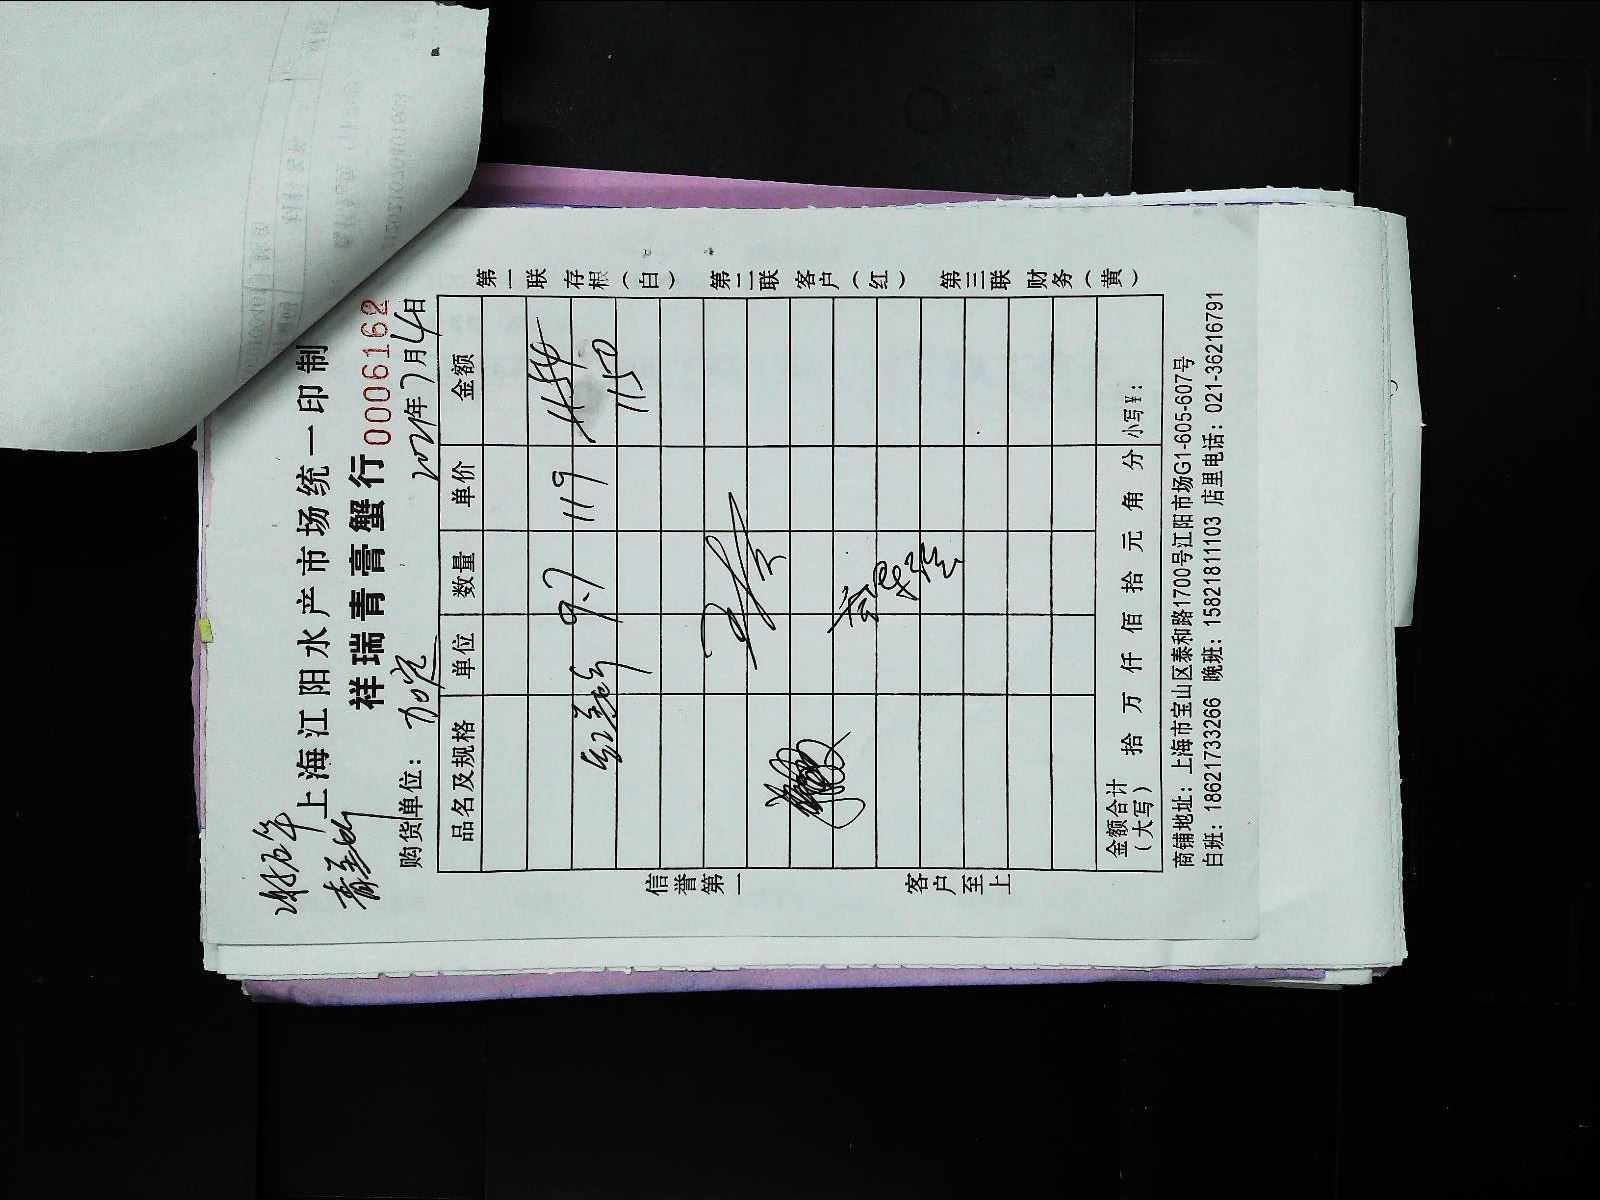 上海江阳水产市场统一印制
祥瑞青膏蟹行
0006162
购货单位：
2021年7月4日
品名及规格 单位 数量 单价 金额
9.7 119 1154
1150
金额合计（大写） 拾 万 仟 佰 拾 元 角 分 小写¥：
商铺地址：上海市宝山区泰和路1700号江阳市场G1-605-607号
白班：18621733266 晚班：15821811103 店里电话：021-36216791
信誉第一 客户至上
第一联 存根（白） 第二联 客户（红） 第三联 财务（黄）